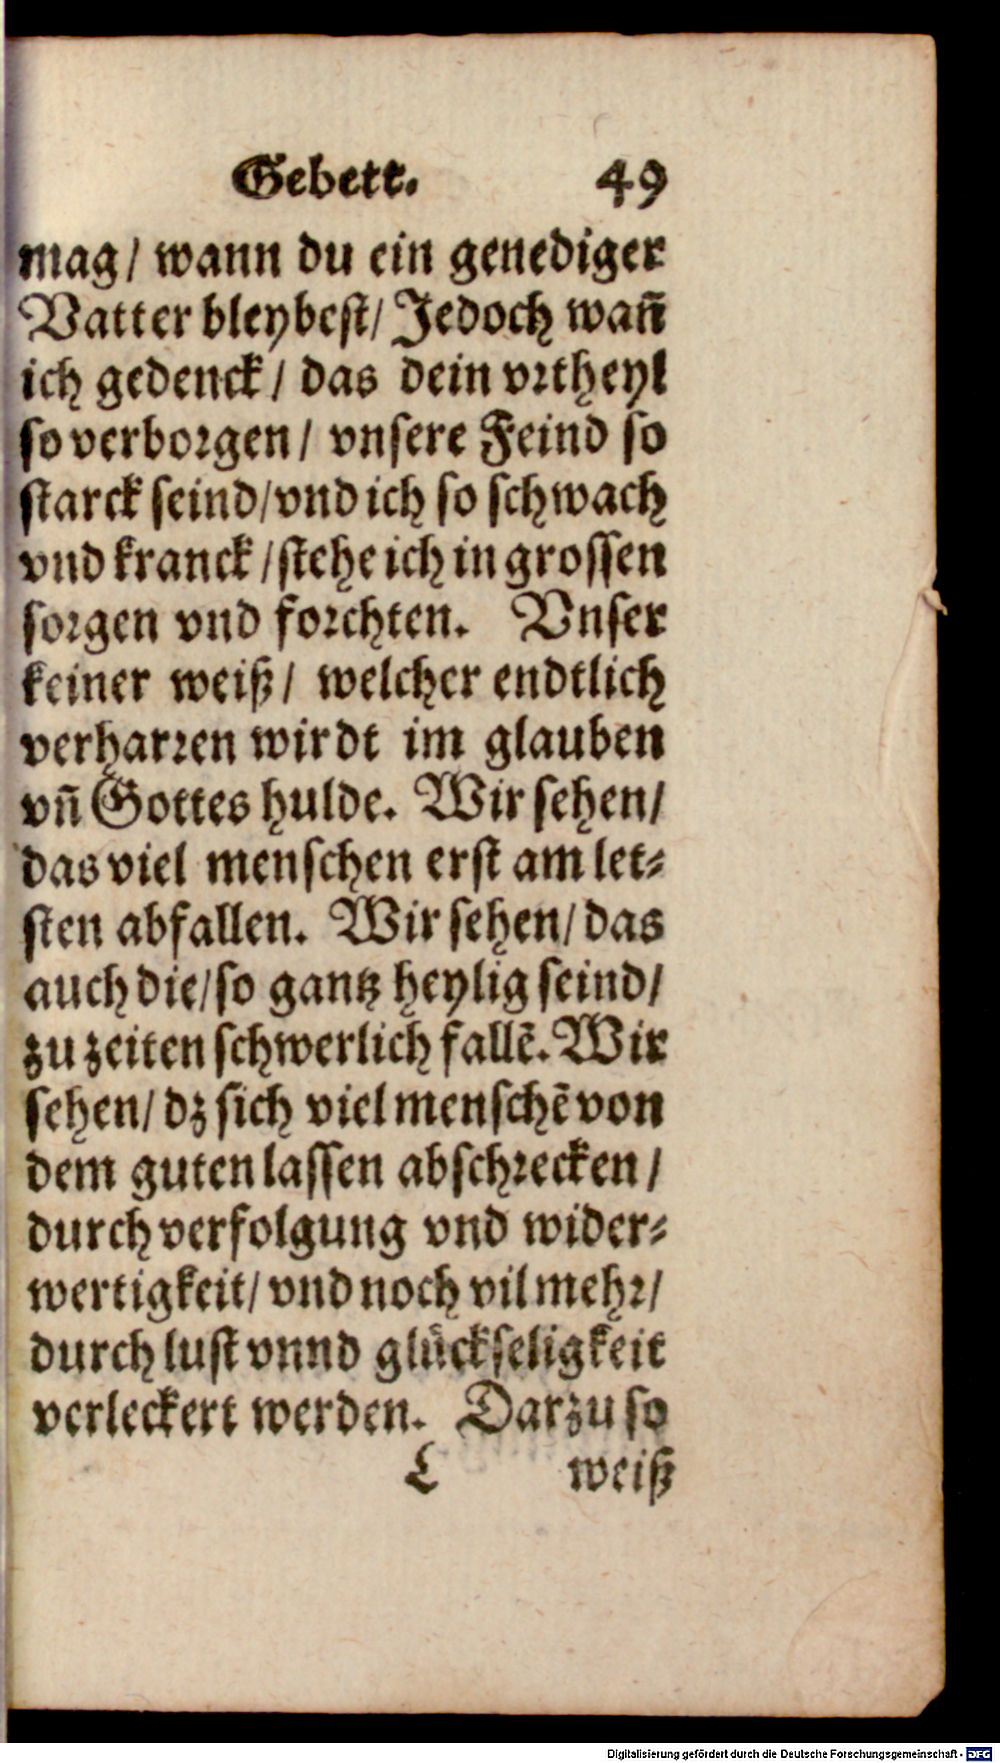 Gebett. 49
mag/ wann du ein genediger
Vatter bleybest/ Jedoch wañ
ich gedenck/ das dein vrtheyl
so verborgen/ vnsere Feind so
starck seind/vnd ich so schwach
vnd kranck/stehe ich in grossen
sorgen vnd forchten. Vnser
keiner weiß/ welcher endtlich
verharren wirdt im glauben
vñ Gottes hulde. Wir sehen/
das viel menschen erst am let⸗
sten abfallen. Wir sehen/das
auch die/so gantz heylig seind/
zu zeiten schwerlich fallẽ. Wir
sehen/ dz sich viel menschẽ von
dem guten lassen abschrecken/
durch verfolgung vnd wider⸗
wertigkeit/vnd noch vil mehr/
durch lust vnnd glückseligkeit
verleckert werden. Darzu so
L weiß
Digitalisierung gefördert durch die Deutsche Forschungsgemeinschaft - DFG